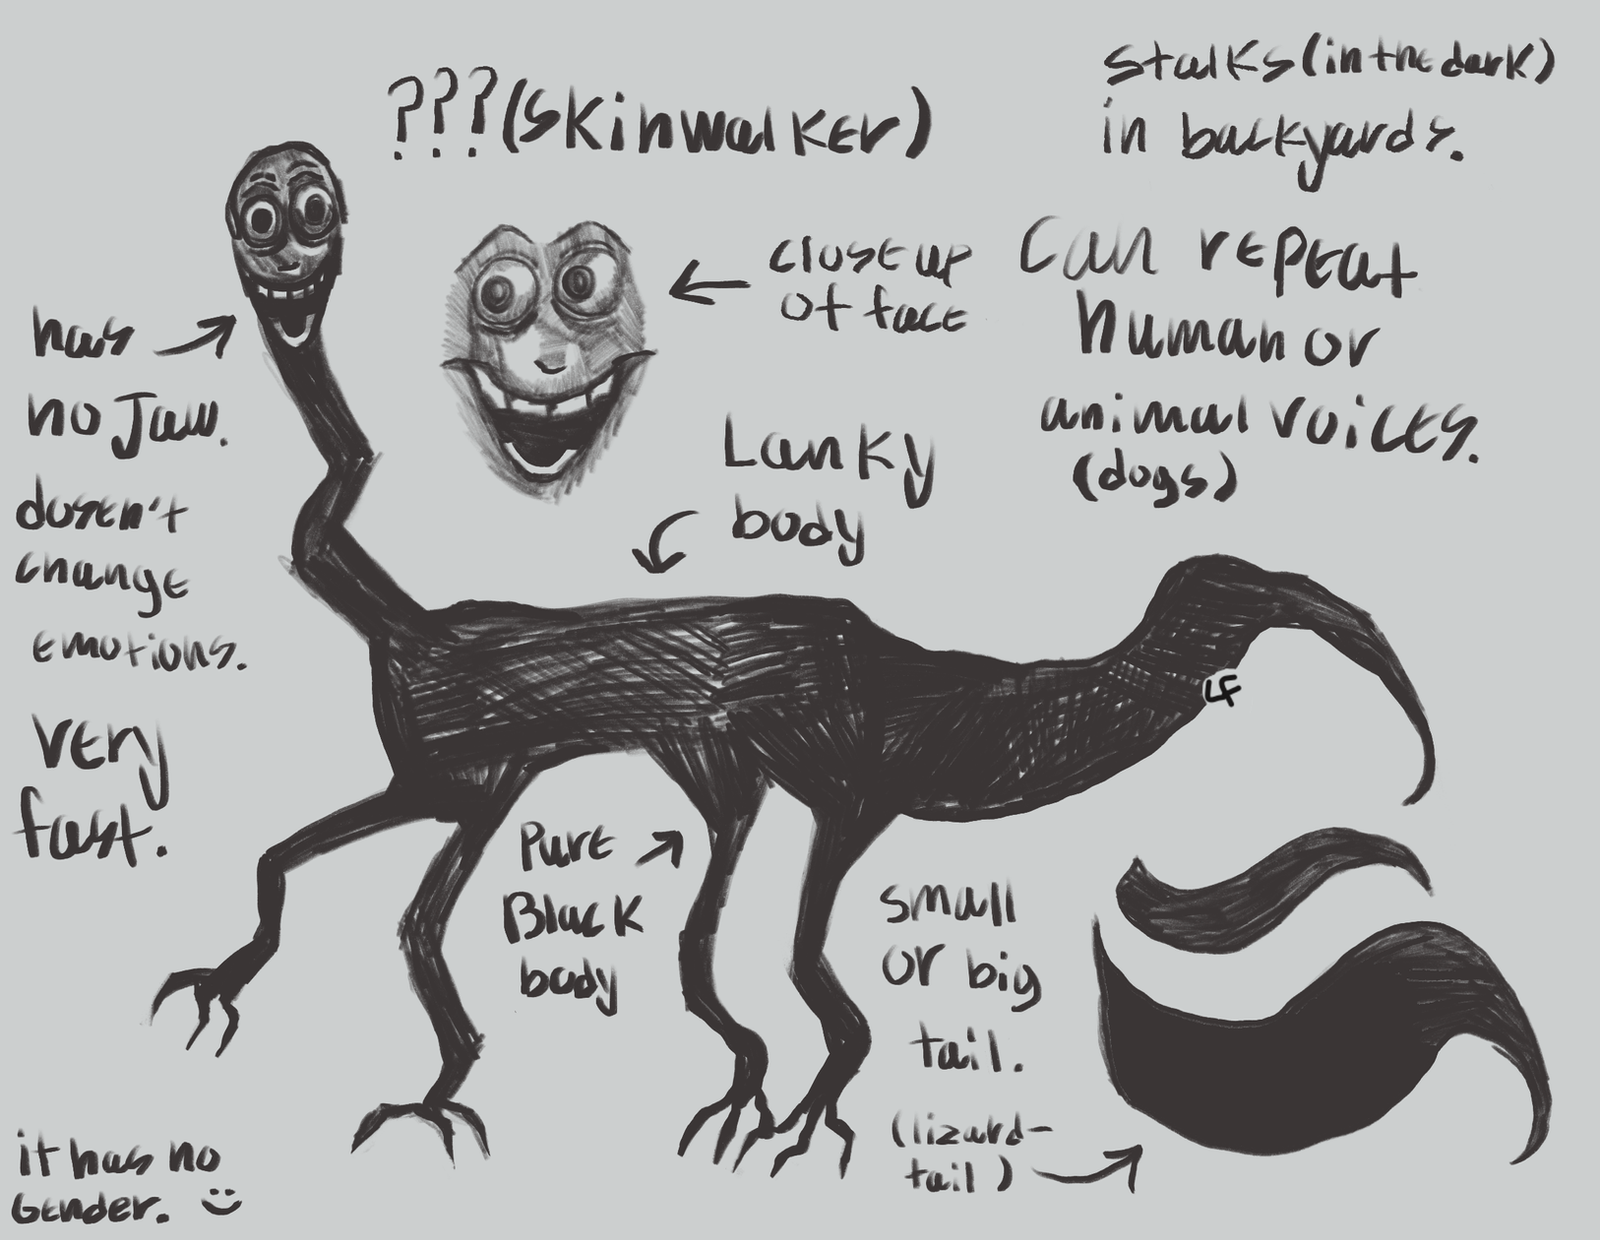 ???(skinwalker)
stalks(in the dark)
in backyards.
close up
of face
can repeat
human or
animal voices.
(dogs)
has
no Jaw.
dosen't
change
emotions.
Lanky
body
very
fast.
LF
Pure
Black
body
small
or big
tail.
(lizard-
tail)
it has no
Gender. :)